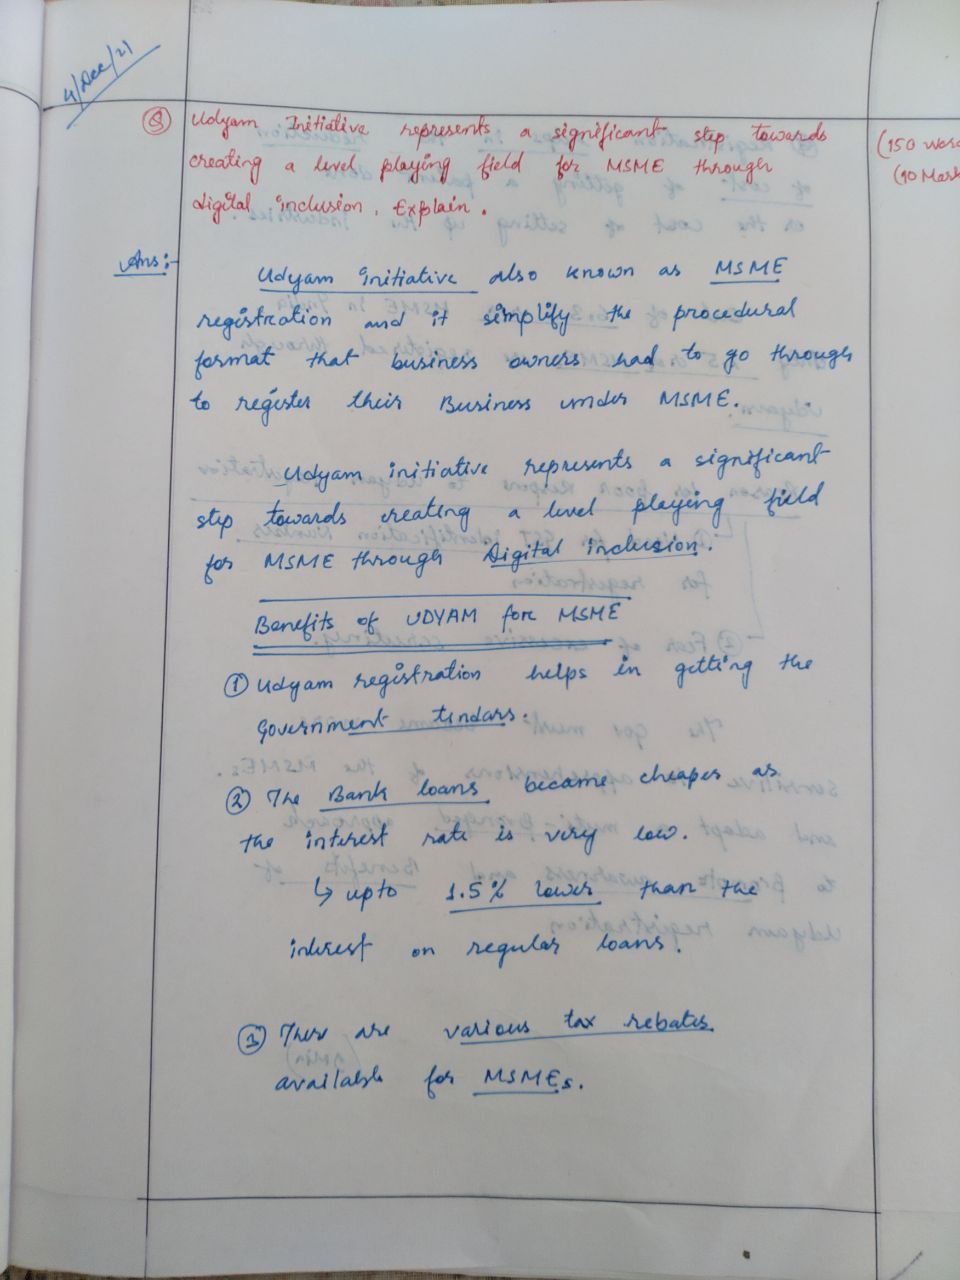 4/Dec/21
Q Udyam Initiative represents a significant step towards (150 word
creating a level playing field for MSME through (10 Mark
digital inclusion. Explain.
Ans:- Udyam initiative also known as MSME
registration and it simplify the procedural
format that business owners had to go through
to register their Business under MSME.
Udyam initiative represents a significant
step towards creating a level playing field
for MSME through Digital inclusion.
Benefits of UDYAM for MSME
① Udyam registration helps in getting the
Government tendars.
② The Bank loans became cheaper as
the interest rate is very low.
↳ upto 1.5% lower than the
interest on regular loans.
③ There are various tax rebates
available for MSMEs.